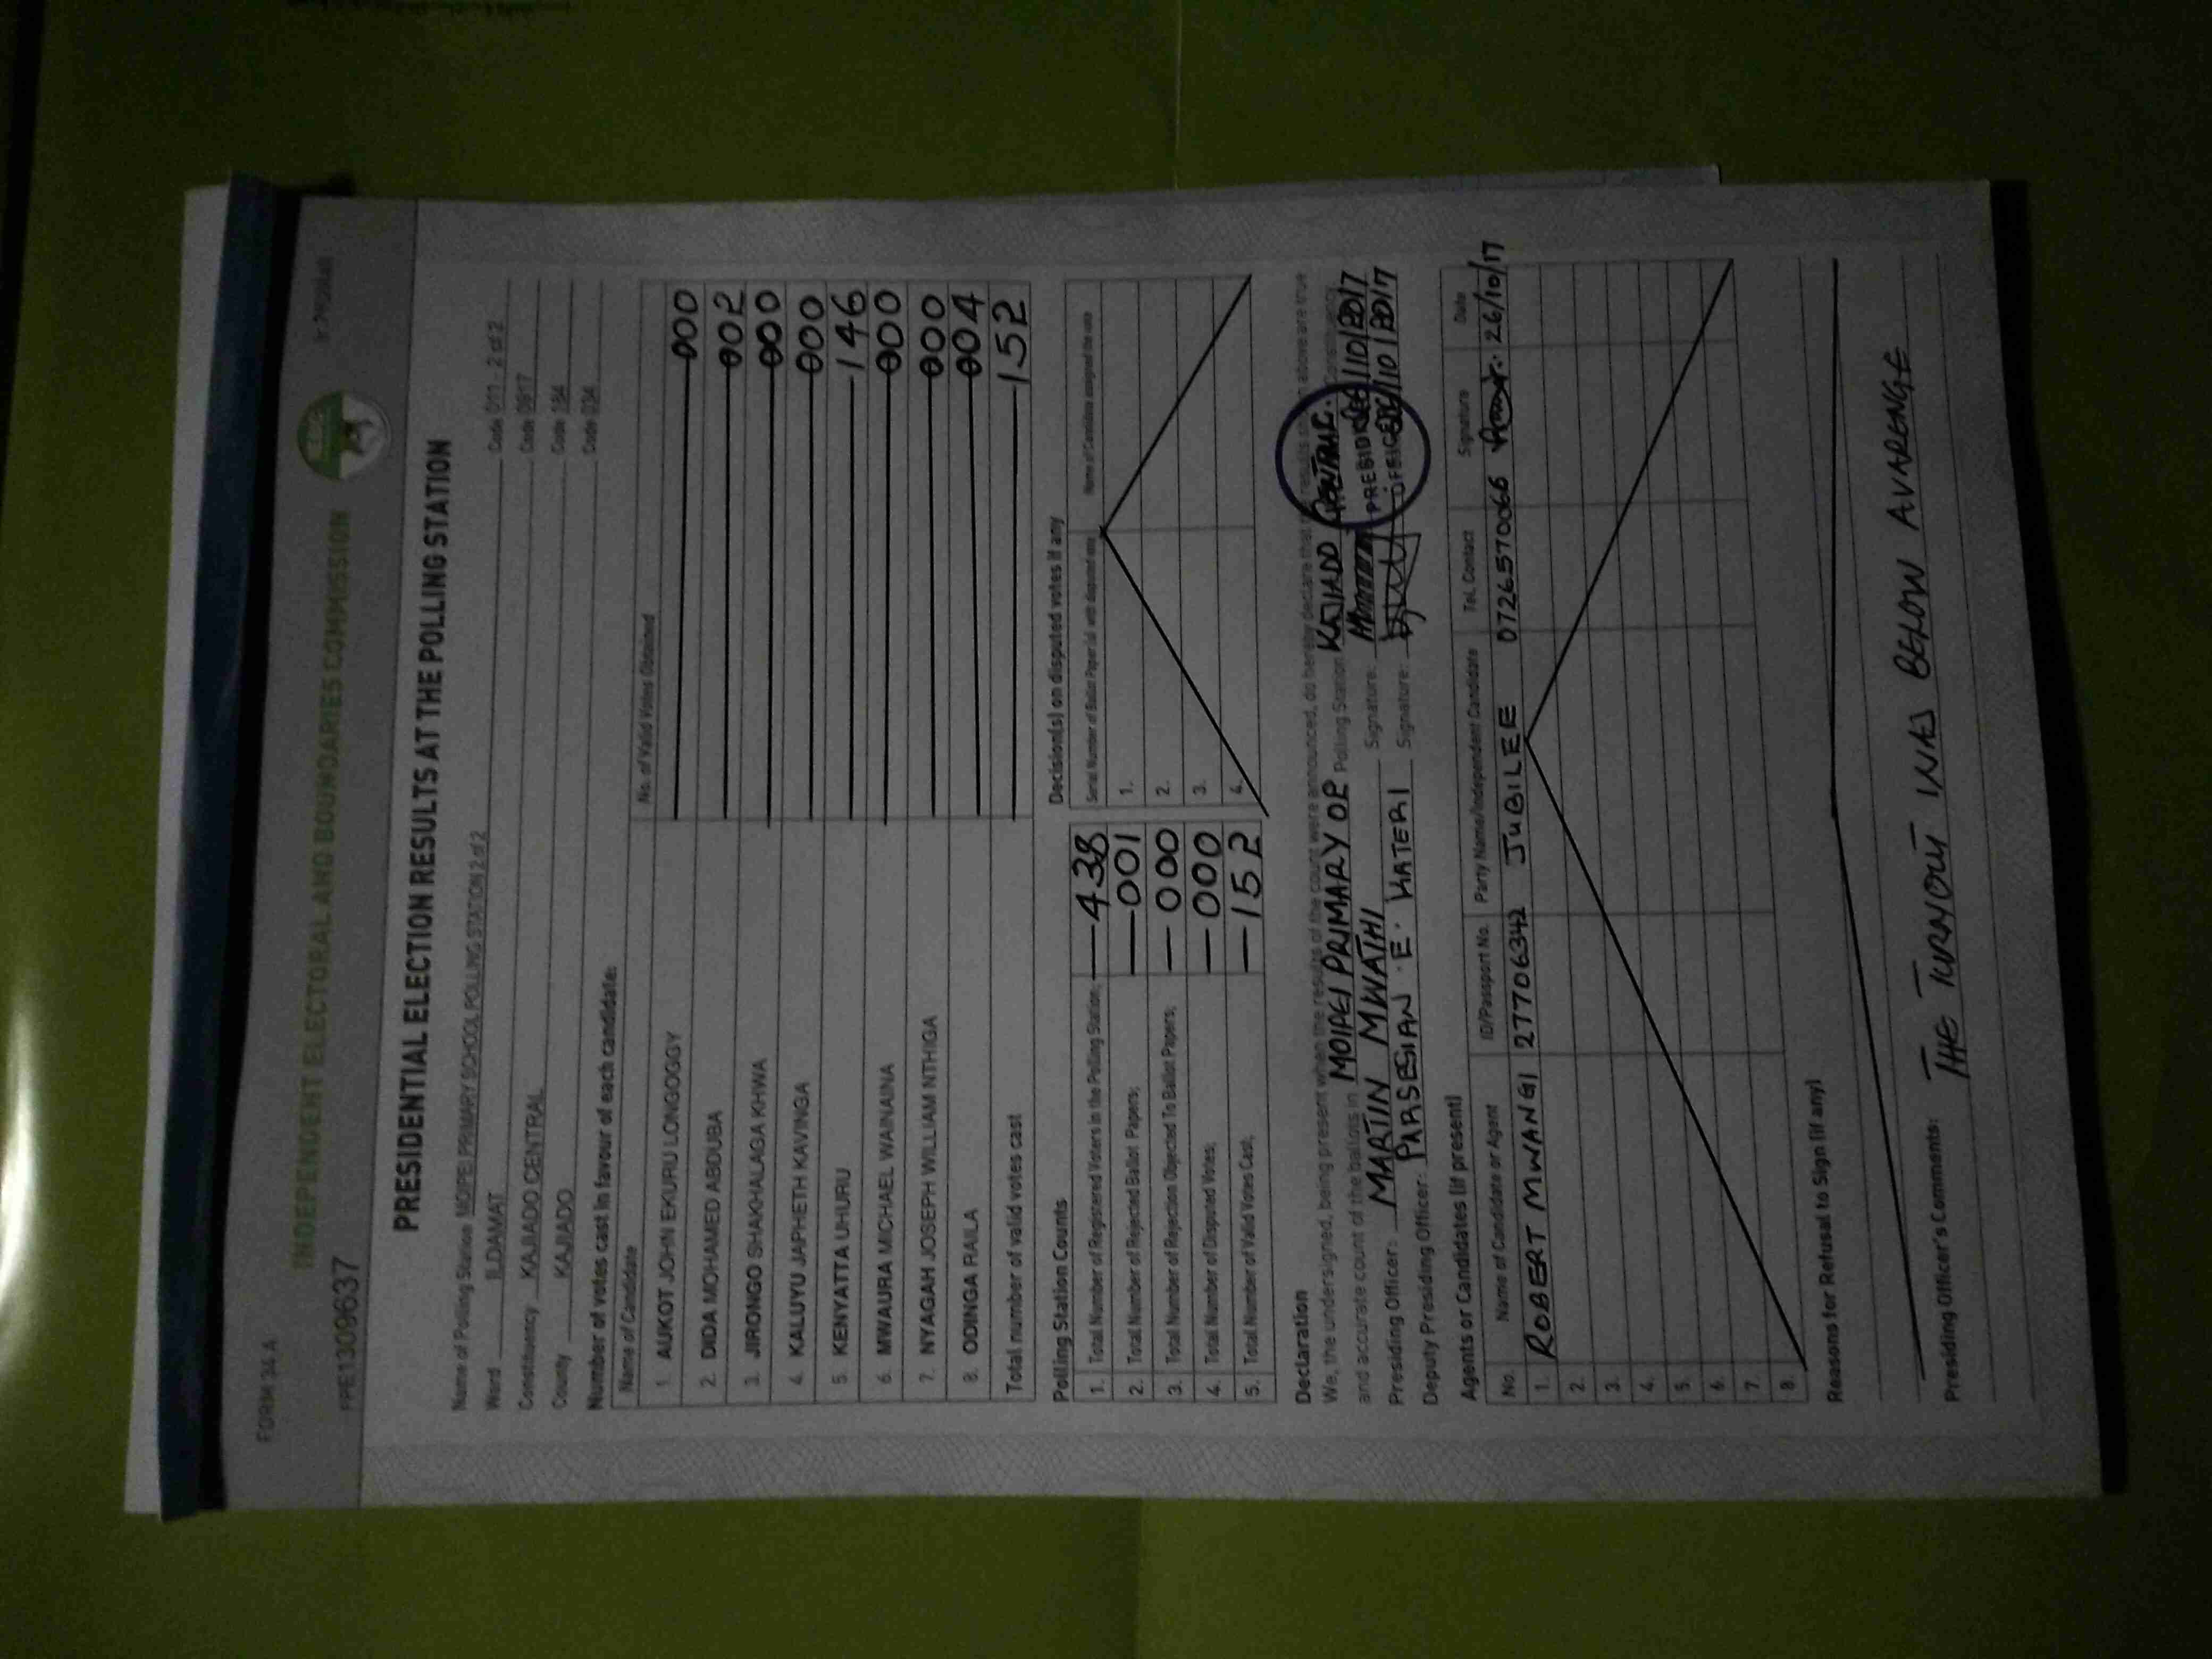 FORM 34 A
INDEPENDENT ELECTORAL AND BOUNDARIES COMMISSION
PPE1309637
PRESIDENTIAL ELECTION RESULTS AT THE POLLING STATION
Name of Polling Station MOIPEI PRIMARY SCHOOL POLLING STATION 2 of 2 Code 011 . 2 of 2
Ward ILDAMAT Code 0917
Constituency KAJIADO CENTRAL Code 184
County KAJIADO Code 034
Number of votes cast in favour of each candidate:
Name of Candidate No. of Valid Votes Obtained
1. AUKOT JOHN EKURU LONGOGGY 000
2. DIDA MOHAMED ABDUBA 002
3. JIRONGO SHAKHALAGA KHWA 000
4. KALUYU JAPHETH KAVINGA 000
5. KENYATTA UHURU 146
6. MWAURA MICHAEL WAINAINA 000
7. NYAGAH JOSEPH WILLIAM NTHIGA 000
8. ODINGA RAILA 004
Total number of valid votes cast 152
Polling Station Counts
1. Total Number of Registered Voters in the Polling Station; 438
2. Total Number of Rejected Ballot Papers; 001
3. Total Number of Rejection Objected To Ballot Papers; 000
4. Total Number of Disputed Votes; 000
5. Total Number of Valid Votes Cast; 152
Decision(s) on disputed votes if any
Serial Number of Ballot Paper (s) with disputed vote Name of Candidate assigned the vote
1.
2.
3.
4.
Declaration
We, the undersigned, being present when the results of the count were announced, do hereby declare that the results shown above are true
and accurate count of the ballots in MOIPEI PRIMARY 2 OF 2 Polling Station KAJIADO CENTRAL Constituency
Presiding Officer: MARTIN MWATHI Signature: 26/10/2017
Deputy Presiding Officer: PARSESIAN . E . KATERI Signature: 26/10/2017
PRESIDING OFFICER
Agents or Candidates (if present)
No. Name of Candidate or Agent ID/Passport No. Party Name/Independent Candidate Tel. Contact Signature Date
1. ROBERT MWANGI 27706342 JUBILEE 0726570066 26/10/17
2.
3.
4.
5.
6.
7.
8.
Reasons for Refusal to Sign (if any)
Presiding Officer's Comments: THE TURNOUT WAS BELOW AVARENGE